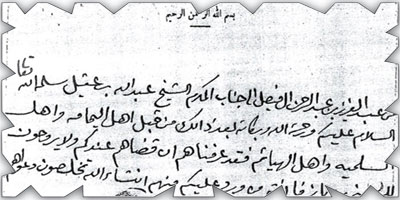 بسم الله الرحمن الرحيم
من عبد العزيز بن عبد الرحمن الفيصل الى جناب المكرم الشيخ عبد الله بن عقيل سلمه الله تعا
السلام عليكم ورحمة الله وبركاته بعد ذالك من قبل اهل اليمامه واهل
السلميه واهل الهياثم فقد عرفناهم ان قضاهم عندكم ولا يروحون
ورد عليكم منهم انشاء الله تخلصون دعواهم